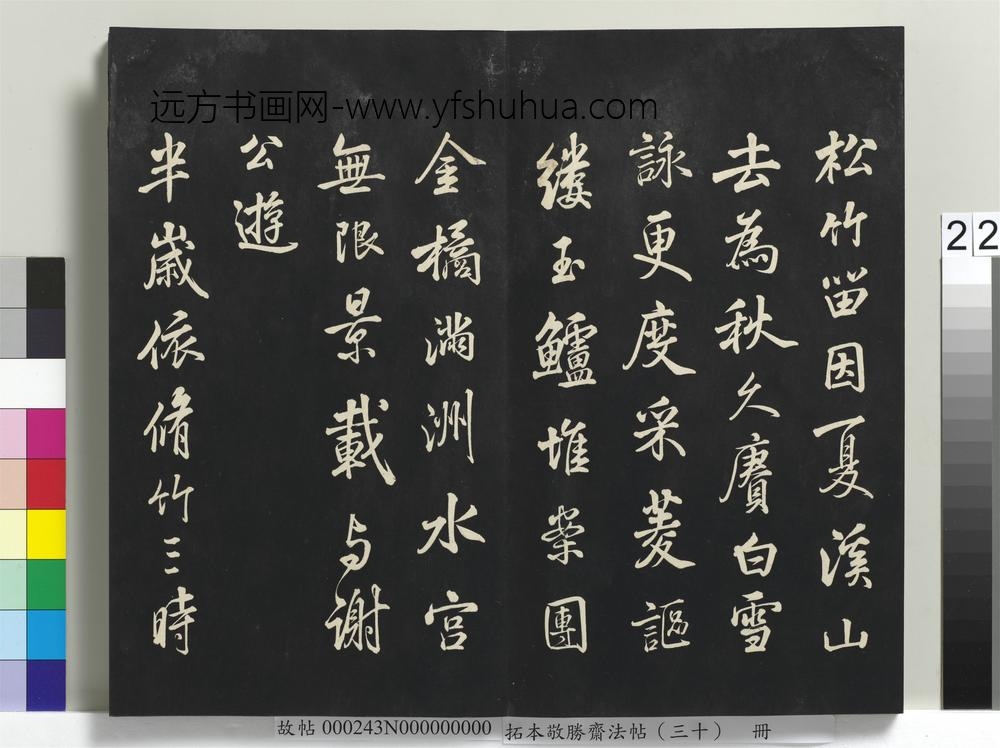 远方书画网-www.yfshuhua.com
松竹留因夏溪山
去為秋久賡白雪
詠更度采菱謳
縷玉鱸堆案團
金橘滿洲水宫
無限景載与謝
公遊
半歲依脩竹三時
22
2
故帖 000243N000000000
拓本敬勝齋法帖（三十） 冊